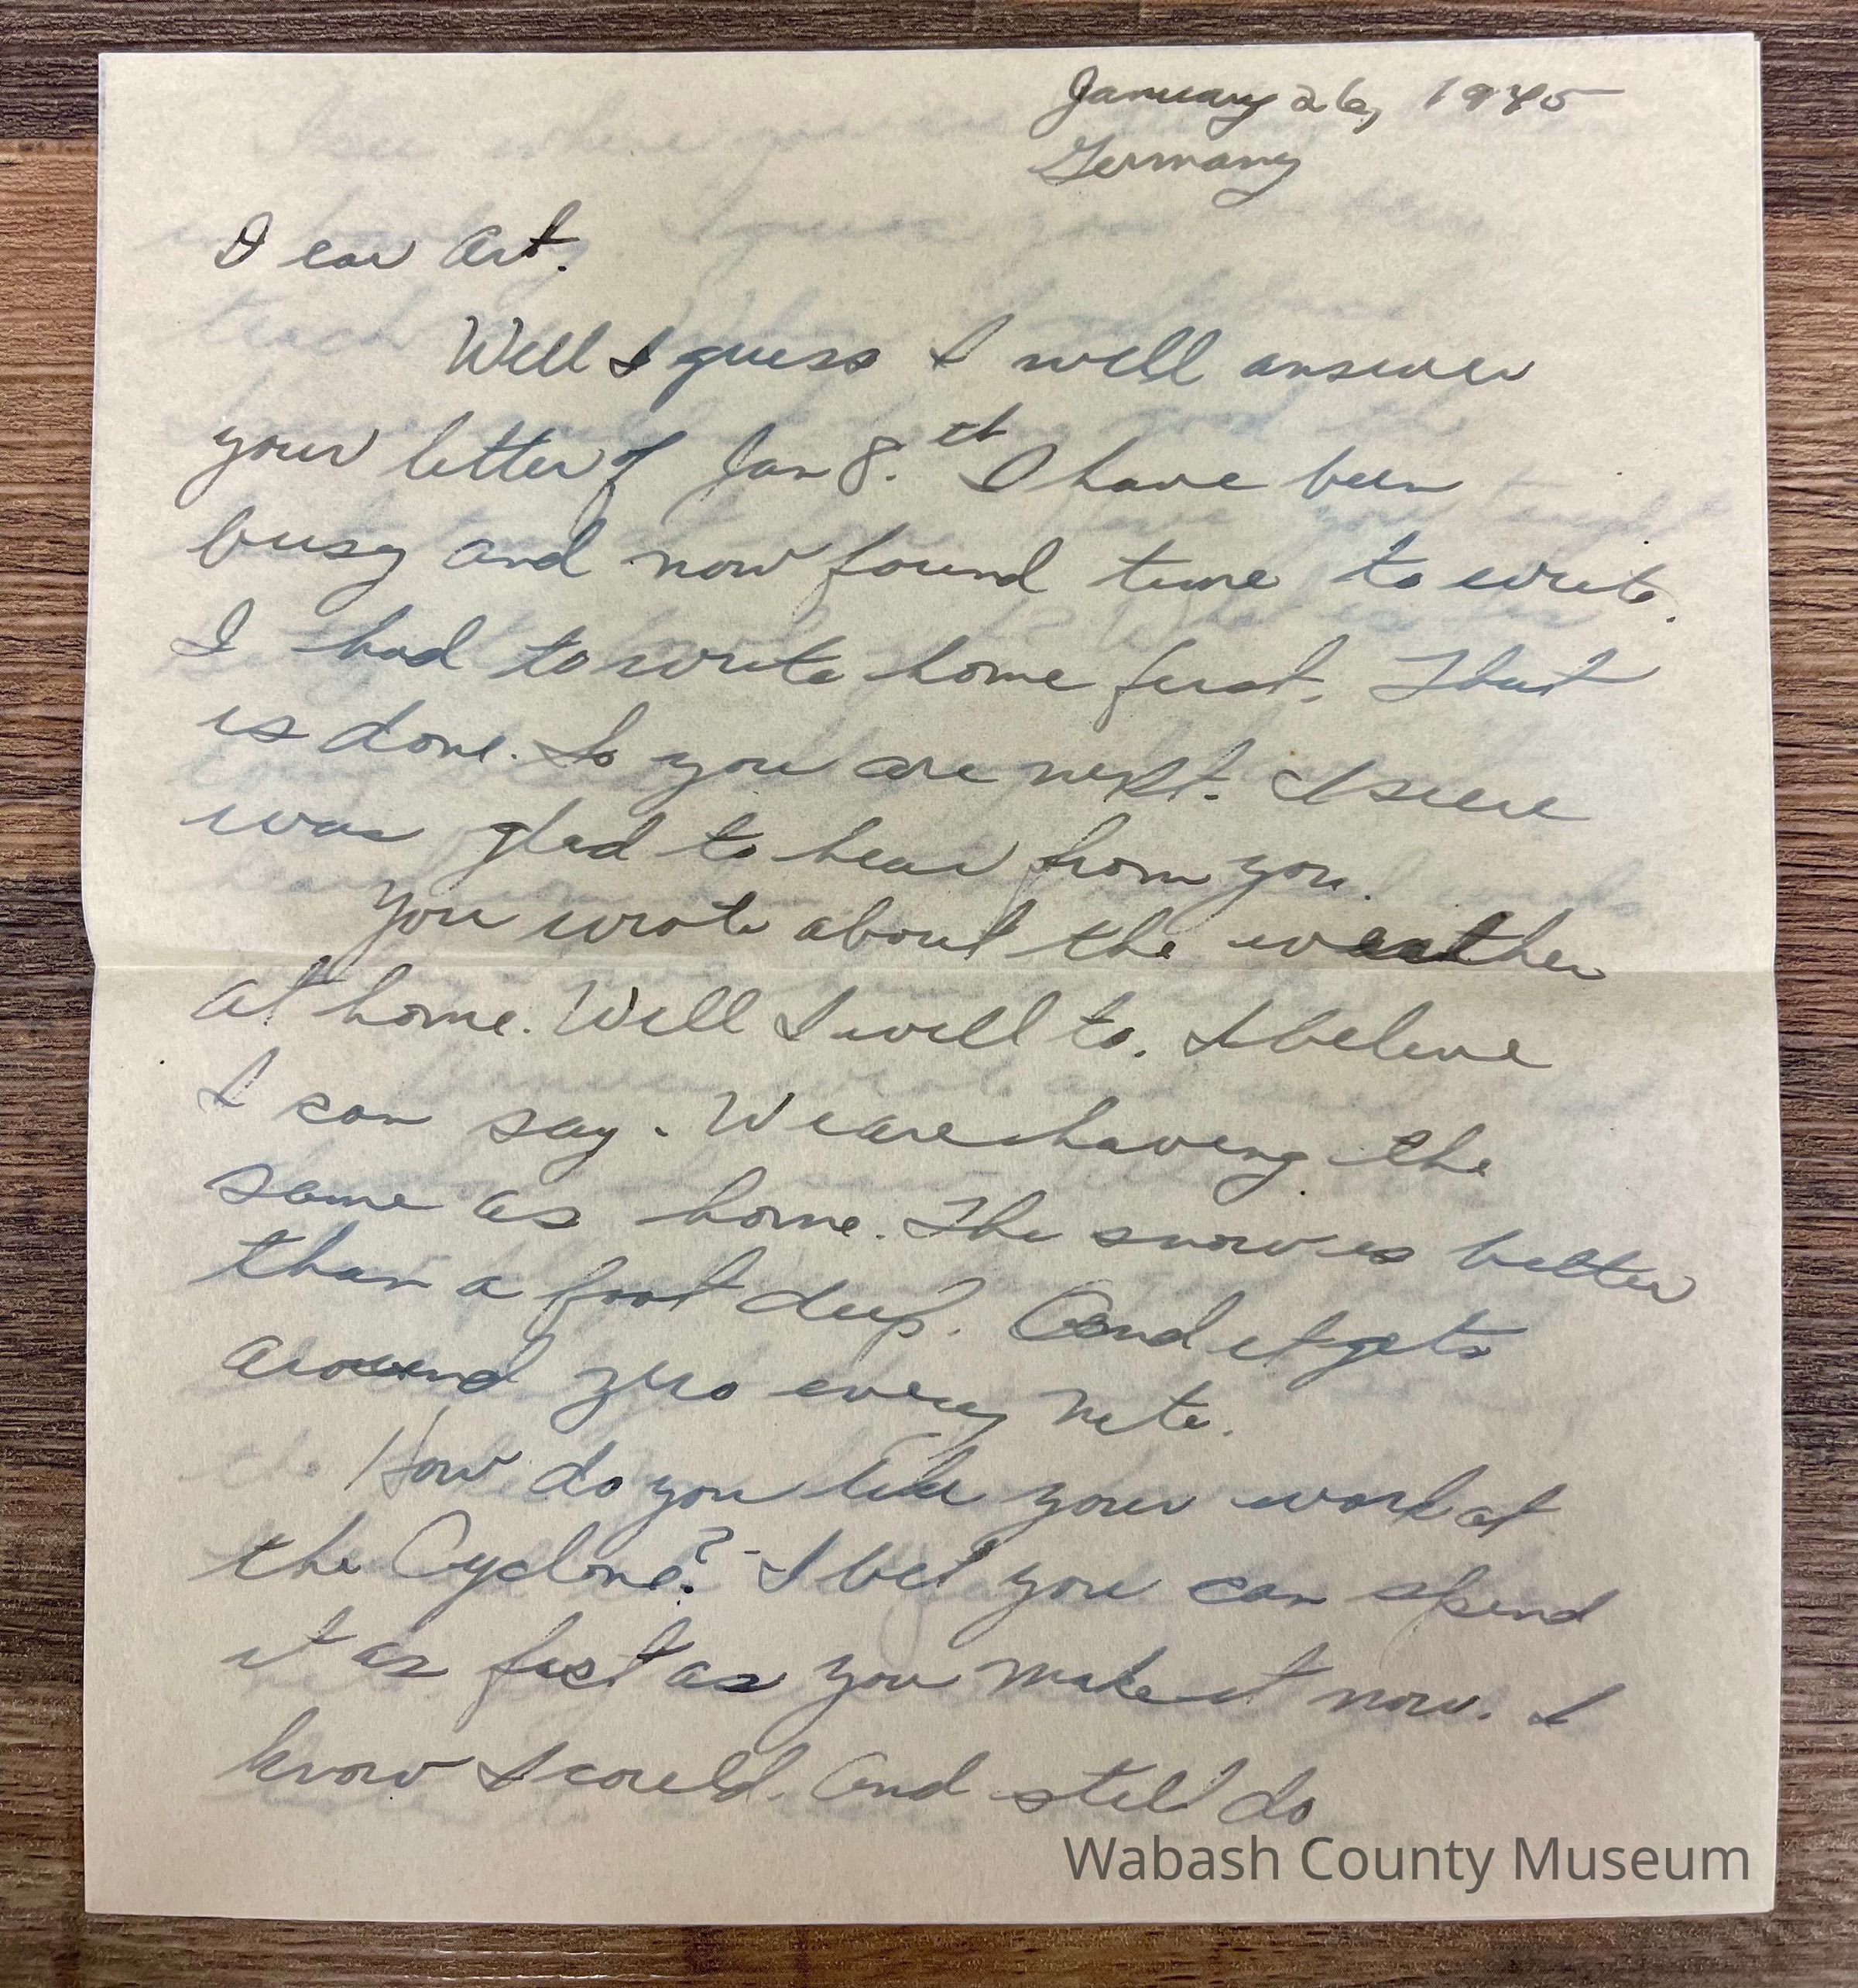 January 26, 1945
Germany
Dear Art.
Well I guess I will answer
your letter of Jan 8.th I have been
busy and now found time to write.
I had to write home first. That
is done. So you are next. I sure
was glad to hear from you.
You wrote about the weather
at home. Well I will to. I beleive
I can say. We are having the
same as home. The snow is better
than a foot deep. And it gets
around zero every nite.
How do you like your work at
the Cyclone? I bet you can spend
it as fast as you make it now. I
know I could. And still do
Wabash County Museum